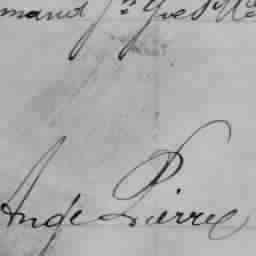 mand Jn Yves Mc
Ange Pierre